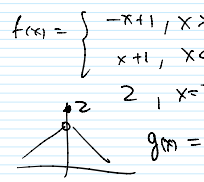 f(x) = { -x+1 , x >
x+1 , x <
2 , x=
2
g(x) =